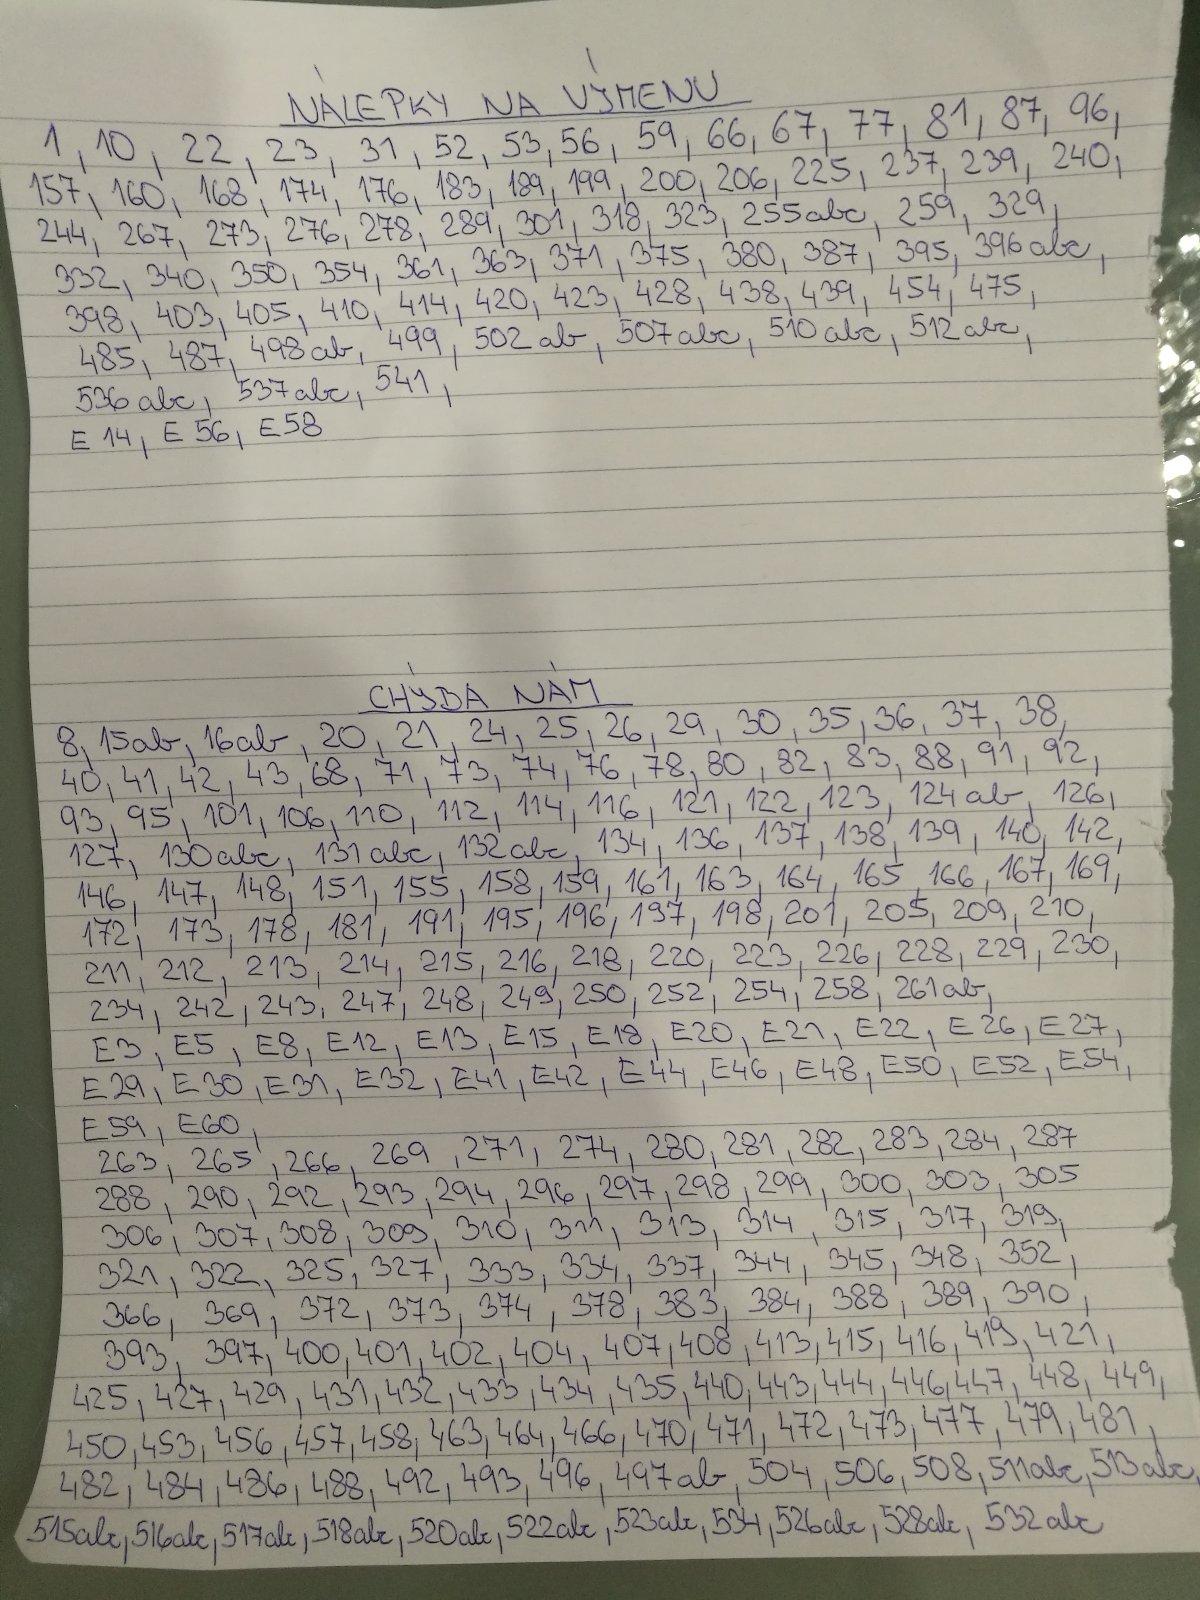 NÁLEPKY NA VÝMENU
1, 10, 22, 23, 31, 52, 53, 56, 59, 66, 67, 77, 81, 87, 96,
157, 160, 168, 174, 176, 183, 189, 199, 200, 206, 225, 237, 239, 240,
244, 267, 273, 276, 278, 289, 301, 318, 323, 255abc, 259, 329,
332, 340, 350, 354, 361, 363, 371, 375, 380, 387, 395, 396abc,
398, 403, 405, 410, 414, 420, 423, 428, 438, 439, 454, 475,
485, 487, 498ab, 499, 502ab, 507abc, 510abc, 512abc,
536abc, 537abc, 541,
E 14, E 56, E58
CHÝBA NÁM
8, 15ab, 16ab, 20, 21, 24, 25, 26, 29, 30, 35, 36, 37, 38,
40, 41, 42, 43, 68, 71, 73, 74, 76, 78, 80, 82, 83, 88, 91, 92,
93, 95, 101, 106, 110, 112, 114, 116, 121, 122, 123, 124ab, 126,
127, 130abc, 131abc, 132abc, 134, 136, 137, 138, 139, 140, 142,
146, 147, 148, 151, 155, 158, 159, 161, 163, 164, 165, 166, 167, 169,
172, 173, 178, 181, 191, 195, 196, 197, 198, 201, 205, 209, 210,
211, 212, 213, 214, 215, 216, 218, 220, 223, 226, 228, 229, 230,
234, 242, 243, 247, 248, 249, 250, 252, 254, 258, 261ab,
E3, E5, E8, E12, E13, E15, E18, E20, E21, E22, E26, E27,
E29, E30, E31, E32, E41, E42, E44, E46, E48, E50, E52, E54,
E59, E60,
263, 265, 266, 269, 271, 274, 280, 281, 282, 283, 284, 287
288, 290, 292, 293, 294, 296, 297, 298, 299, 300, 303, 305
306, 307, 308, 309, 310, 311, 313, 314, 315, 317, 319,
321, 322, 325, 327, 333, 334, 337, 344, 345, 348, 352,
366, 369, 372, 373, 374, 378, 383, 384, 388, 389, 390,
393, 397, 400, 401, 402, 404, 407, 408, 413, 415, 416, 419, 421,
425, 427, 429, 431, 432, 433, 434, 435, 440, 443, 444, 446, 447, 448, 449,
450, 453, 456, 457, 458, 463, 464, 466, 470, 471, 472, 473, 477, 479, 481,
482, 484, 486, 488, 492, 493, 496, 497ab, 504, 506, 508, 511abc, 513abc,
515abc, 516abc, 517abc, 518abc, 520abc, 522abc, 523abc, 534, 526abc, 528abc, 532abc